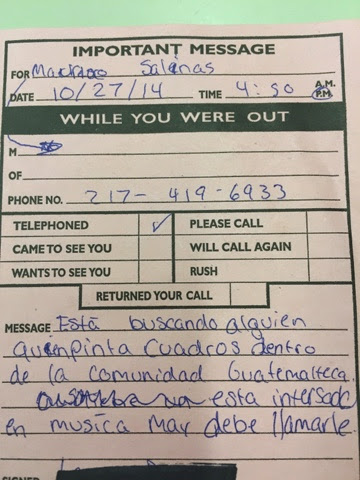 IMPORTANT MESSAGE
FOR Salinas
DATE 10/27/14 TIME 4:50 A.M.
P.M.
WHILE YOU WERE OUT
M
OF
PHONE NO. 217-419-6933
TELEPHONED ✓ PLEASE CALL
CAME TO SEE YOU WILL CALL AGAIN
WANTS TO SEE YOU RUSH
RETURNED YOUR CALL
MESSAGE Está buscando alguien
quien pinta cuadros dentro
de la comunidad Guatemalteca
esta intersado
en musica Max debe llamarle